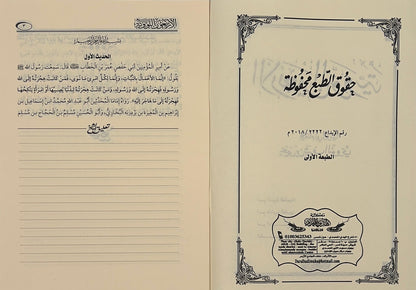 حقوق الطبع محفوظة
رقم الإيداع: ٢٢٢٢ / ٢٠١٨م
الطبعة الأولى
01003625363
الأربعون النووية
٣
بسم الله الرحمن الرحيم
الحديث الأول
عن أمير المؤمنين أبي حفص عمر بن الخطاب ﷺ قال: سمعت رسول الله ﷺ
يقول: إنما الأعمال بالنيات، وإنما لكل امرئ ما نوى، فمن كانت هجرته إلى الله
ورسوله فهجرته إلى الله ورسوله، ومن كانت هجرته لدنيا يصيبها أو امرأة ينكحها
فهجرته إلى ما هاجر إليه. رواه إماما المحدثين أبو عبد الله محمد بن إسماعيل بن
إبراهيم بن المغيرة بن بردزبه البخاري، وأبو الحسين مسلم بن الحجاج بن مسلم